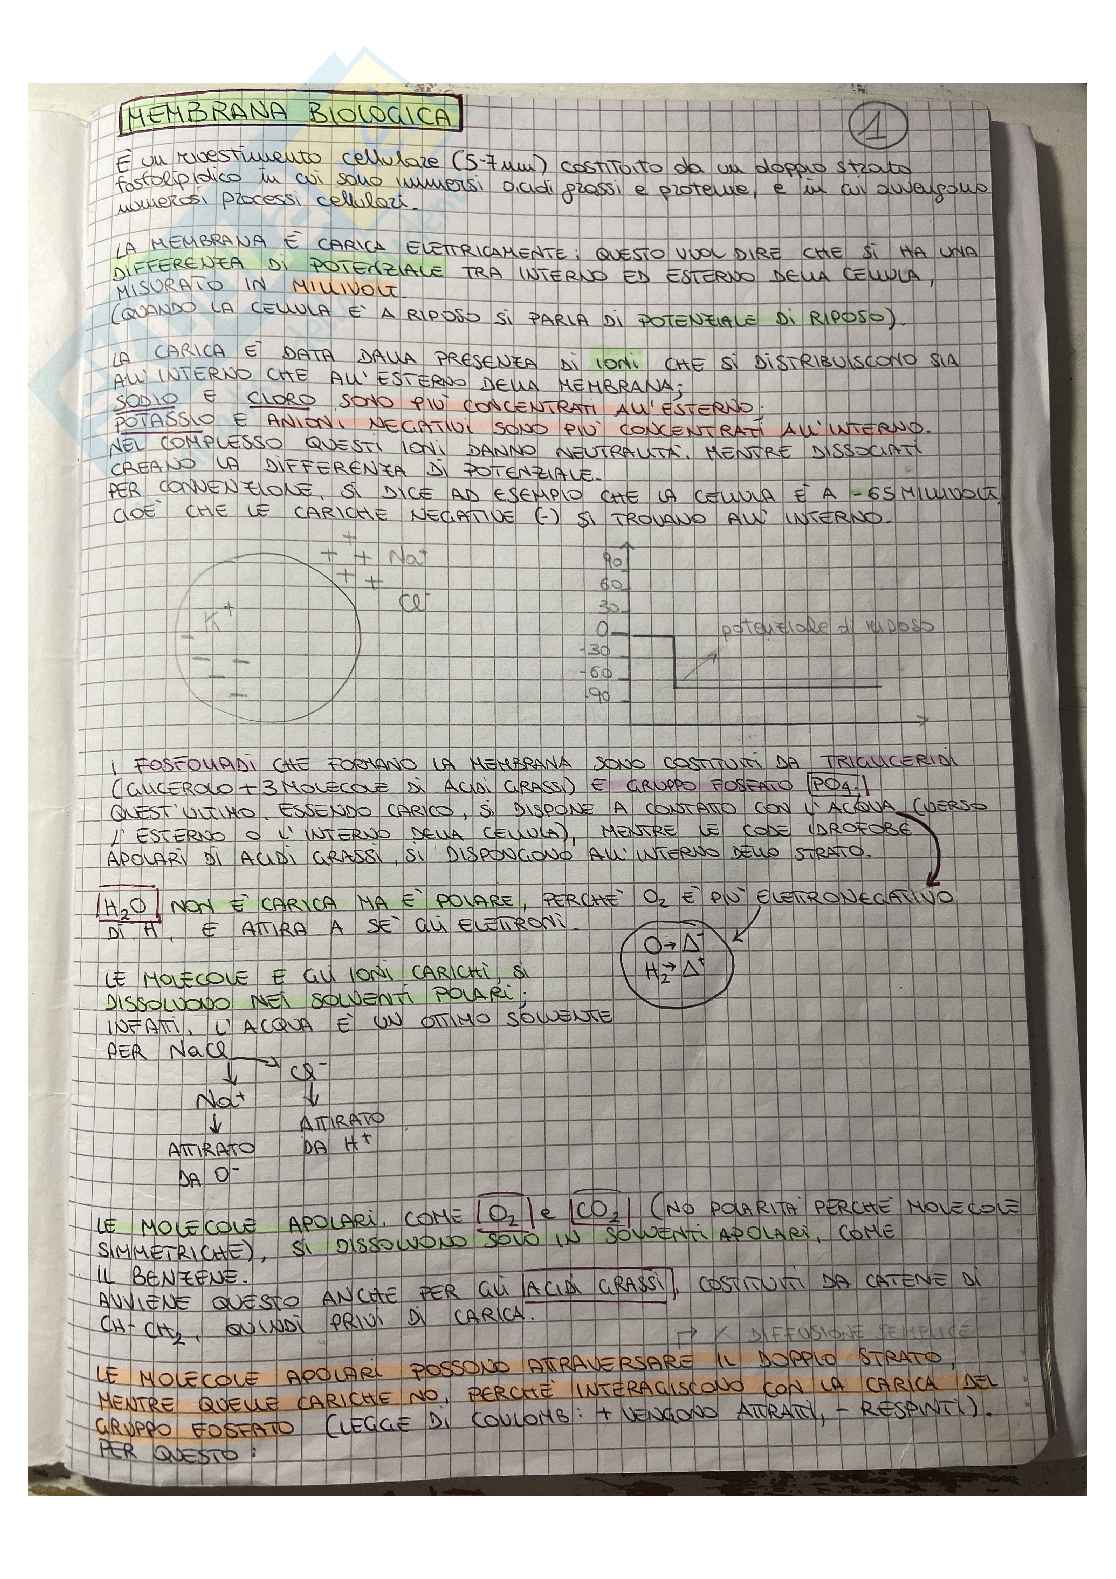 MEMBRANA BIOLOGICA
1
È un rivestimento cellulare (5-7 nm) costituito da un doppio strato
fosfolipidico in cui sono immersi acidi grassi e proteine, e in cui avvengono
numerosi processi cellulari.
LA MEMBRANA È CARICA ELETTRICAMENTE: QUESTO VUOL DIRE CHE SI HA UNA
DIFFERENZA DI POTENZIALE TRA INTERNO ED ESTERNO DELLA CELLULA,
MISURATO IN MILLIVOLT.
(QUANDO LA CELLULA È A RIPOSO SI PARLA DI POTENZIALE DI RIPOSO).
LA CARICA È DATA DALLA PRESENZA DI IONI CHE SI DISTRIBUISCONO SIA
ALL'INTERNO CHE ALL'ESTERNO DELLA MEMBRANA;
SODIO E CLORO SONO PIÙ CONCENTRATI ALL'ESTERNO;
POTASSIO E ANIONI NEGATIVI SONO PIÙ CONCENTRATI ALL'INTERNO.
NEL COMPLESSO QUESTI IONI DANNO NEUTRALITÀ, MENTRE DISSOCIATI
CREANO LA DIFFERENZA DI POTENZIALE.
PER CONVENZIONE, SI DICE AD ESEMPIO CHE LA CELLULA È A -65 MILLIVOLT,
CIOÈ CHE LE CARICHE NEGATIVE (-) SI TROVANO ALL'INTERNO.
+
+ + Na+
+ +
Cl-
K+
-
- -
-
-
90
60
30
0
-30
-60
-90
potenziale di riposo
I FOSFOLIPIDI CHE FORMANO LA MEMBRANA SONO COSTITUITI DA TRIGLICERIDI
(GLICEROLO + 3 MOLECOLE DI ACIDI GRASSI) E GRUPPO FOSFATO PO4.
QUEST'ULTIMO, ESSENDO CARICO, SI DISPONE A CONTATTO CON L'ACQUA (VERSO
L'ESTERNO O L'INTERNO DELLA CELLULA), MENTRE LE CODE IDROFOBE
APOLARI DI ACIDI GRASSI, SI DISPONGONO ALL'INTERNO DELLO STRATO.
H2O NON È CARICA MA È POLARE, PERCHÈ O2 È PIÙ ELETTRONEGATIVO
DI H, E ATTIRA A SÈ GLI ELETTRONI.
O → Δ-
H2 → Δ+
LE MOLECOLE E GLI IONI CARICHI, SI
DISSOLVONO NEI SOLVENTI POLARI;
INFATTI, L'ACQUA È UN OTTIMO SOLVENTE
PER NaCl → Cl-
↓ ↓
Na+ ATTIRATO
↓ DA H+
ATTIRATO
DA O-
LE MOLECOLE APOLARI, COME O2 e CO2 (NO POLARITÀ PERCHÈ MOLECOLE
SIMMETRICHE), SI DISSOLVONO SOLO IN SOLVENTI APOLARI, COME
IL BENZENE.
AVVIENE QUESTO ANCHE PER GLI ACIDI GRASSI, COSTITUITI DA CATENE DI
CH-CH2, QUINDI PRIVI DI CARICA.
→ X DIFFUSIONE SEMPLICE
LE MOLECOLE APOLARI POSSONO ATTRAVERSARE IL DOPPIO STRATO,
MENTRE QUELLE CARICHE NO, PERCHÈ INTERAGISCONO CON LA CARICA DEL
GRUPPO FOSFATO (LEGGE DI COULOMB: + VENGONO ATTRATTI, - RESPINTI).
PER QUESTO: